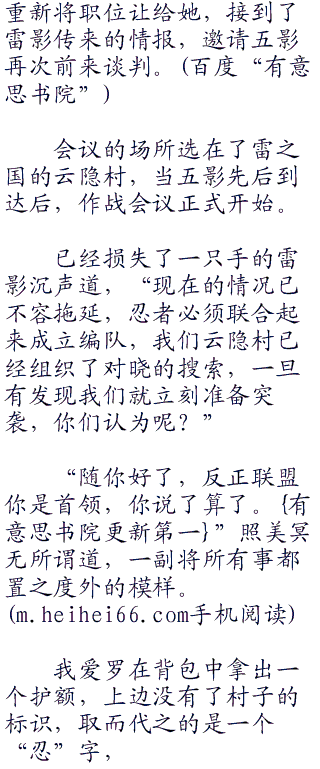 重新将职位让给她，接到了
雷影传来的情报，邀请五影
再次前来谈判。(百度“有意
思书院”)
会议的场所选在了雷之
国的云隐村，当五影先后到
达后，作战会议正式开始。
已经损失了一只手的雷
影沉声道，“现在的情况已
不容拖延，忍者必须联合起
来成立编队，我们云隐村已
经组织了对晓的搜索，一旦
有发现我们就立刻准备突
袭，你们认为呢？”
“随你好了，反正联盟
你是首领，你说了算了。{有
意思书院更新第一}”照美冥
无所谓道，一副将所有事都
置之度外的模样。
(m.heihei66.com手机阅读)
我爱罗在背包中拿出一
个护额，上边没有了村子的
标识，取而代之的是一个
“忍”字，